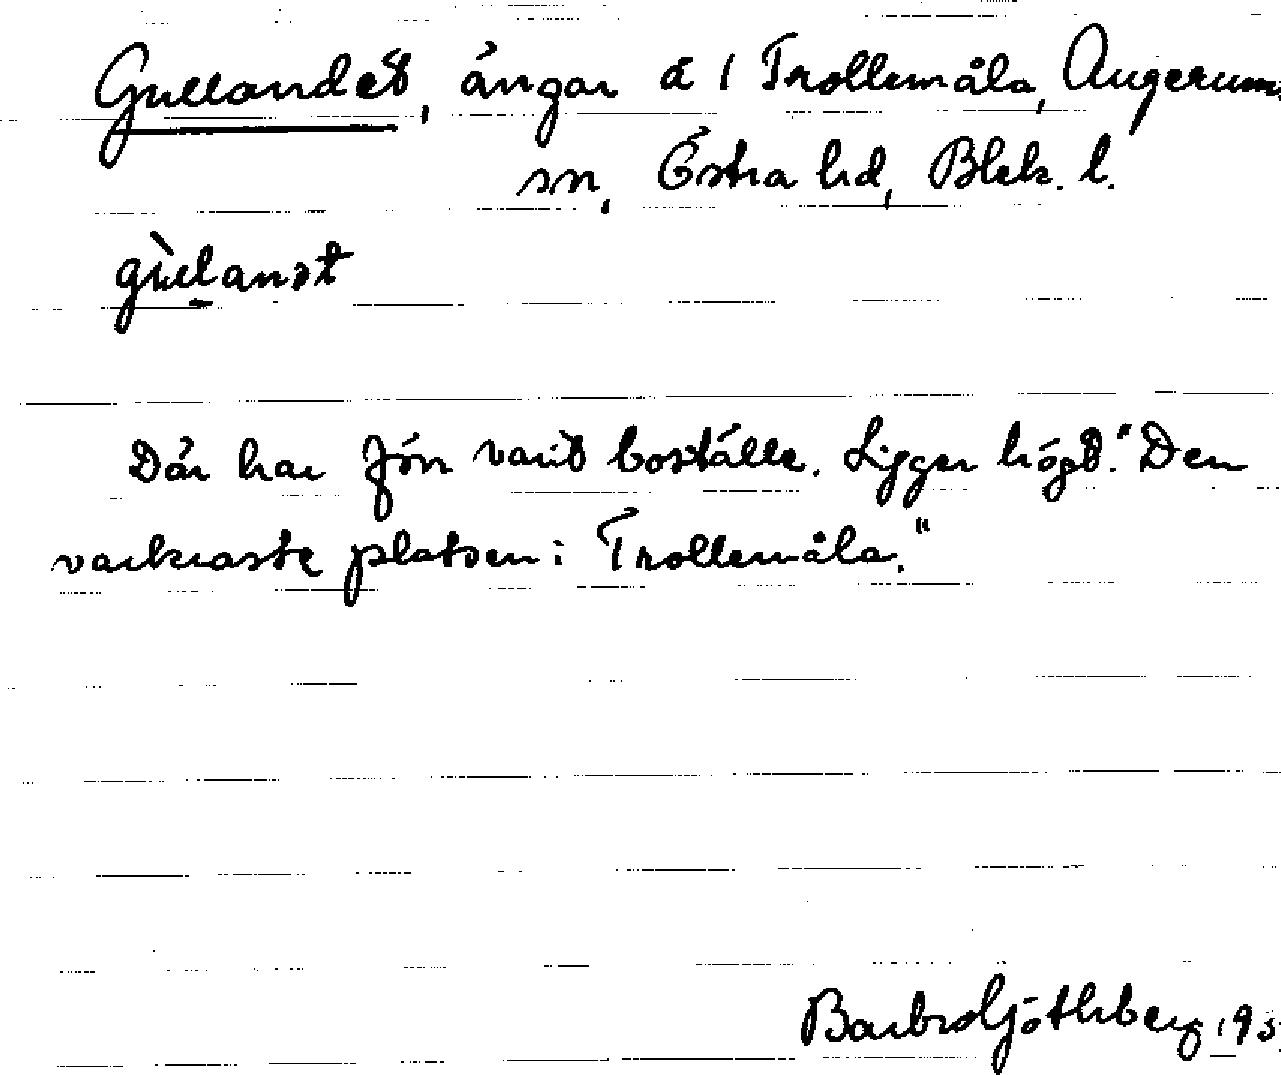 Gullandet, ängar å 1 Trollemåla, Augerums
sn, Östra hd, Blek. l.
Där har förr varit boställe. Ligger högt. "Den
vackraste platsen i Trollemåla."
Barbro Göthberg 195